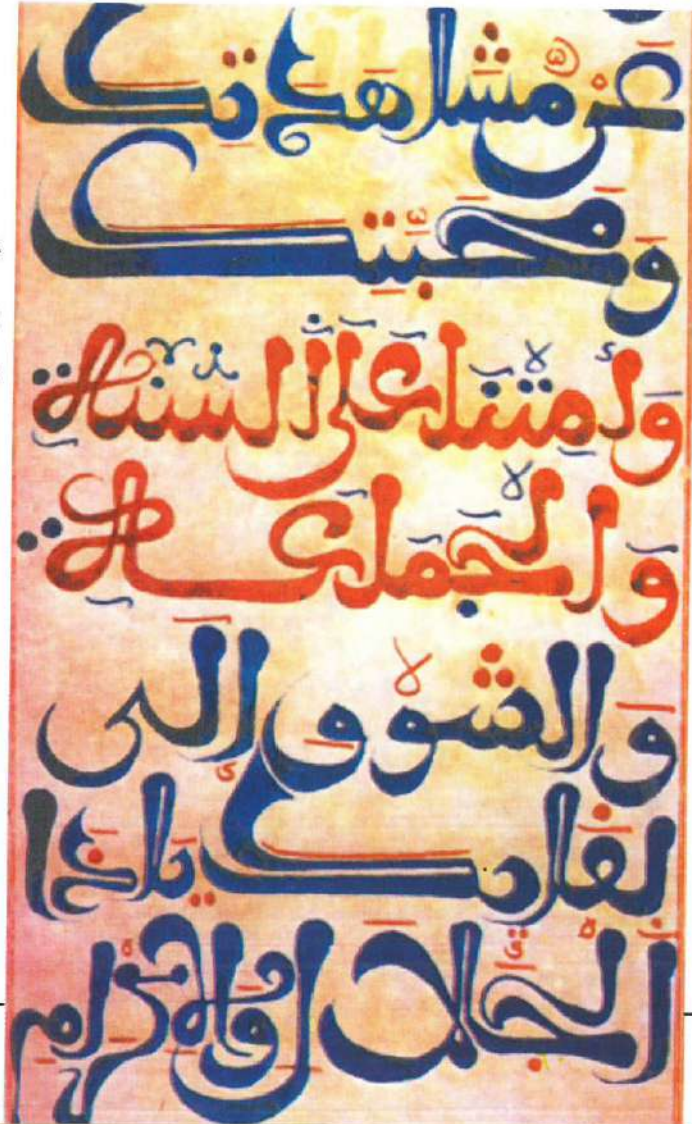 عَنْ مُشَاهَدَتِكَ
وَمَحَبَّتِكَ
وَأَمِتْنَا عَلَى السُّنَّةِ
وَالْجَمَاعَةِ
وَالشَّوْقِ إِلَى
لِقَائِكَ يَا ذَا
الْجَلَالِ وَالْإِكْرَامِ